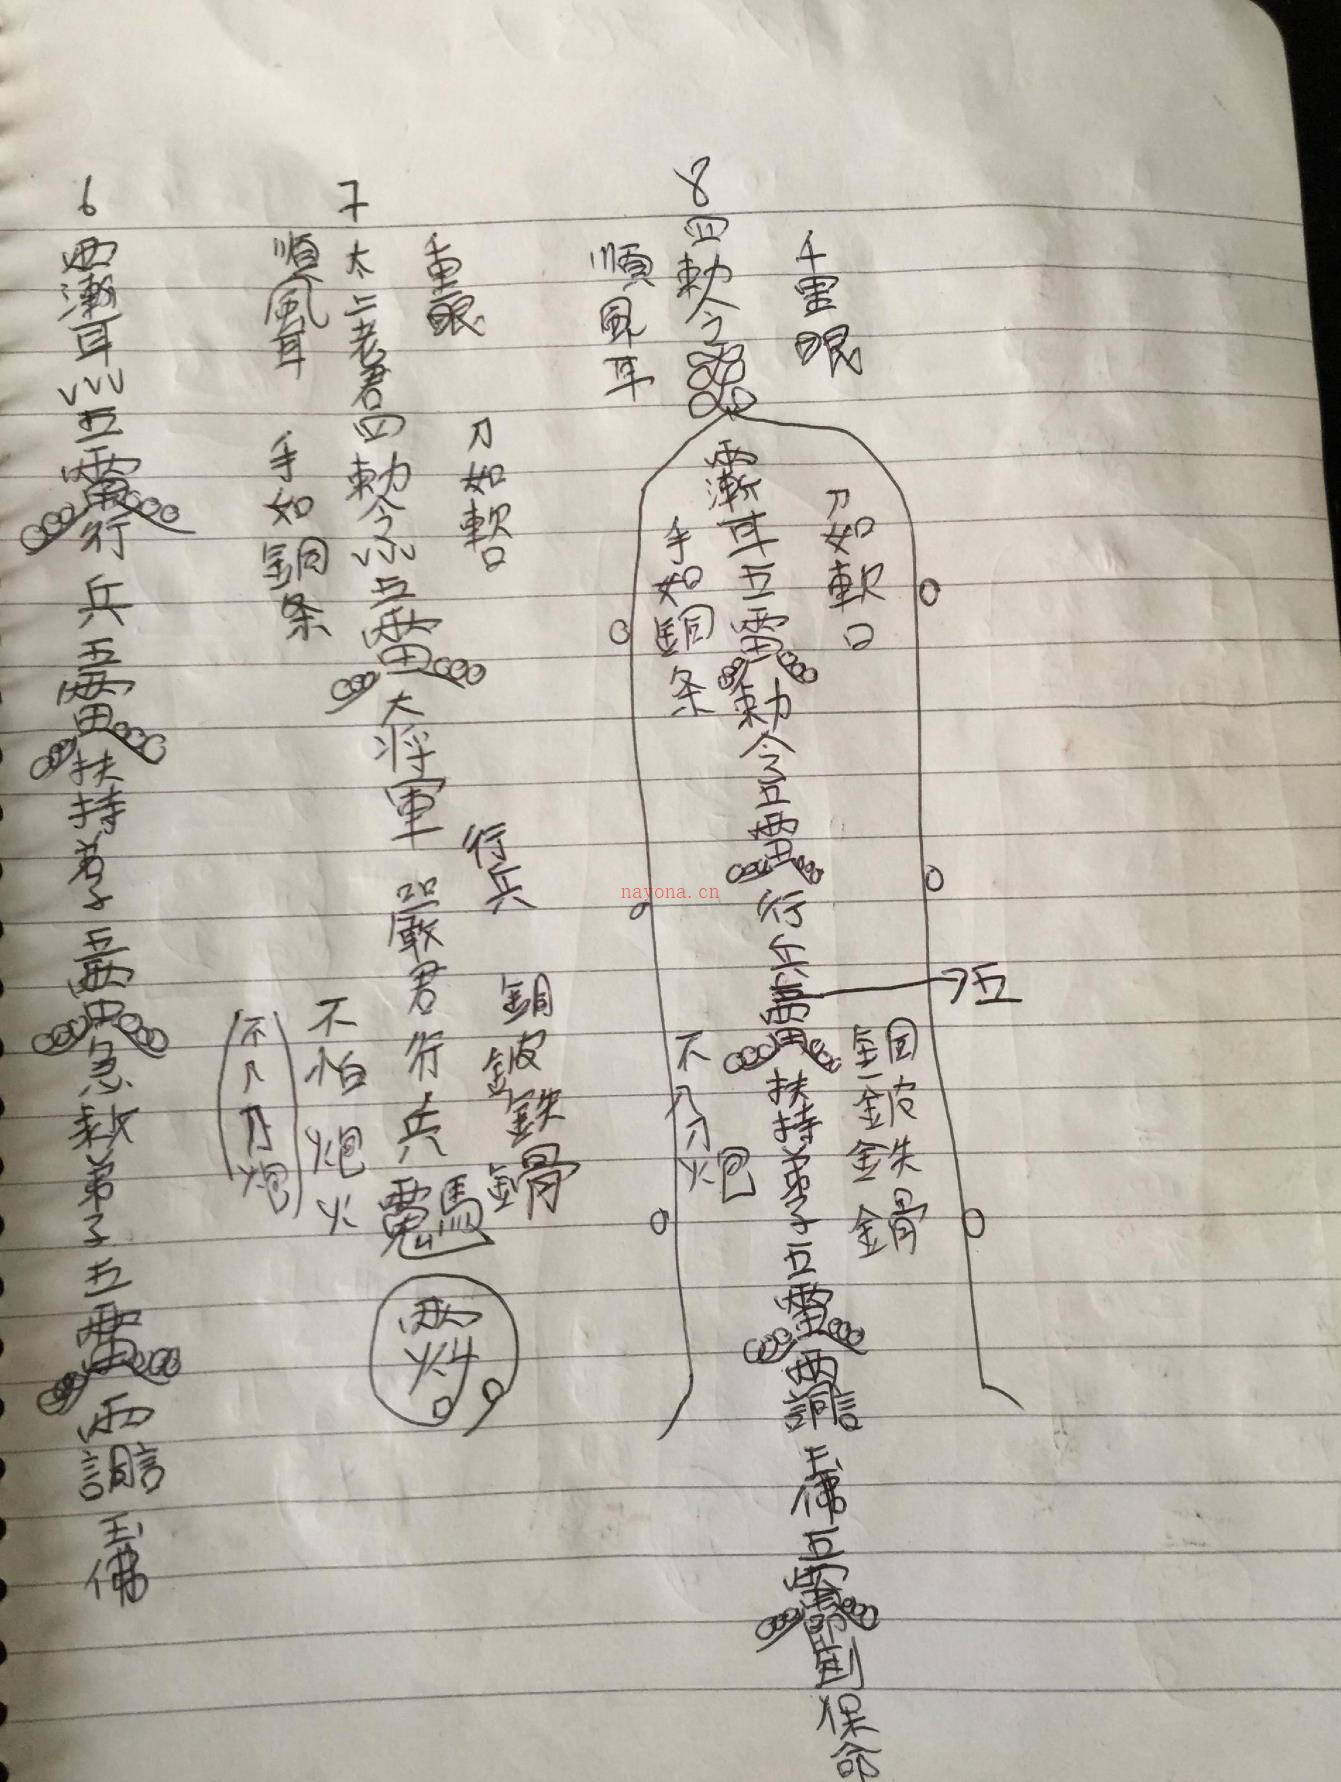 6
耳
五雷行兵五雷扶持弟子五雷急救弟子五雷
玉佛
7
順風耳
太上老君四勅令
五雷大将軍
嚴君行兵
千里眼
手如銅条
刀如軟口
行兵
銅皮鉄骨
不怕炮火
(不入刀炮)
8
順風耳
四勅令
千里眼
耳五雷勅令五雷行兵
雷扶持弟子五雷
玉佛五雷
保命
手如銅条
刀如軟口
五
不入刀炮
銅皮鉄骨
nayona.cn